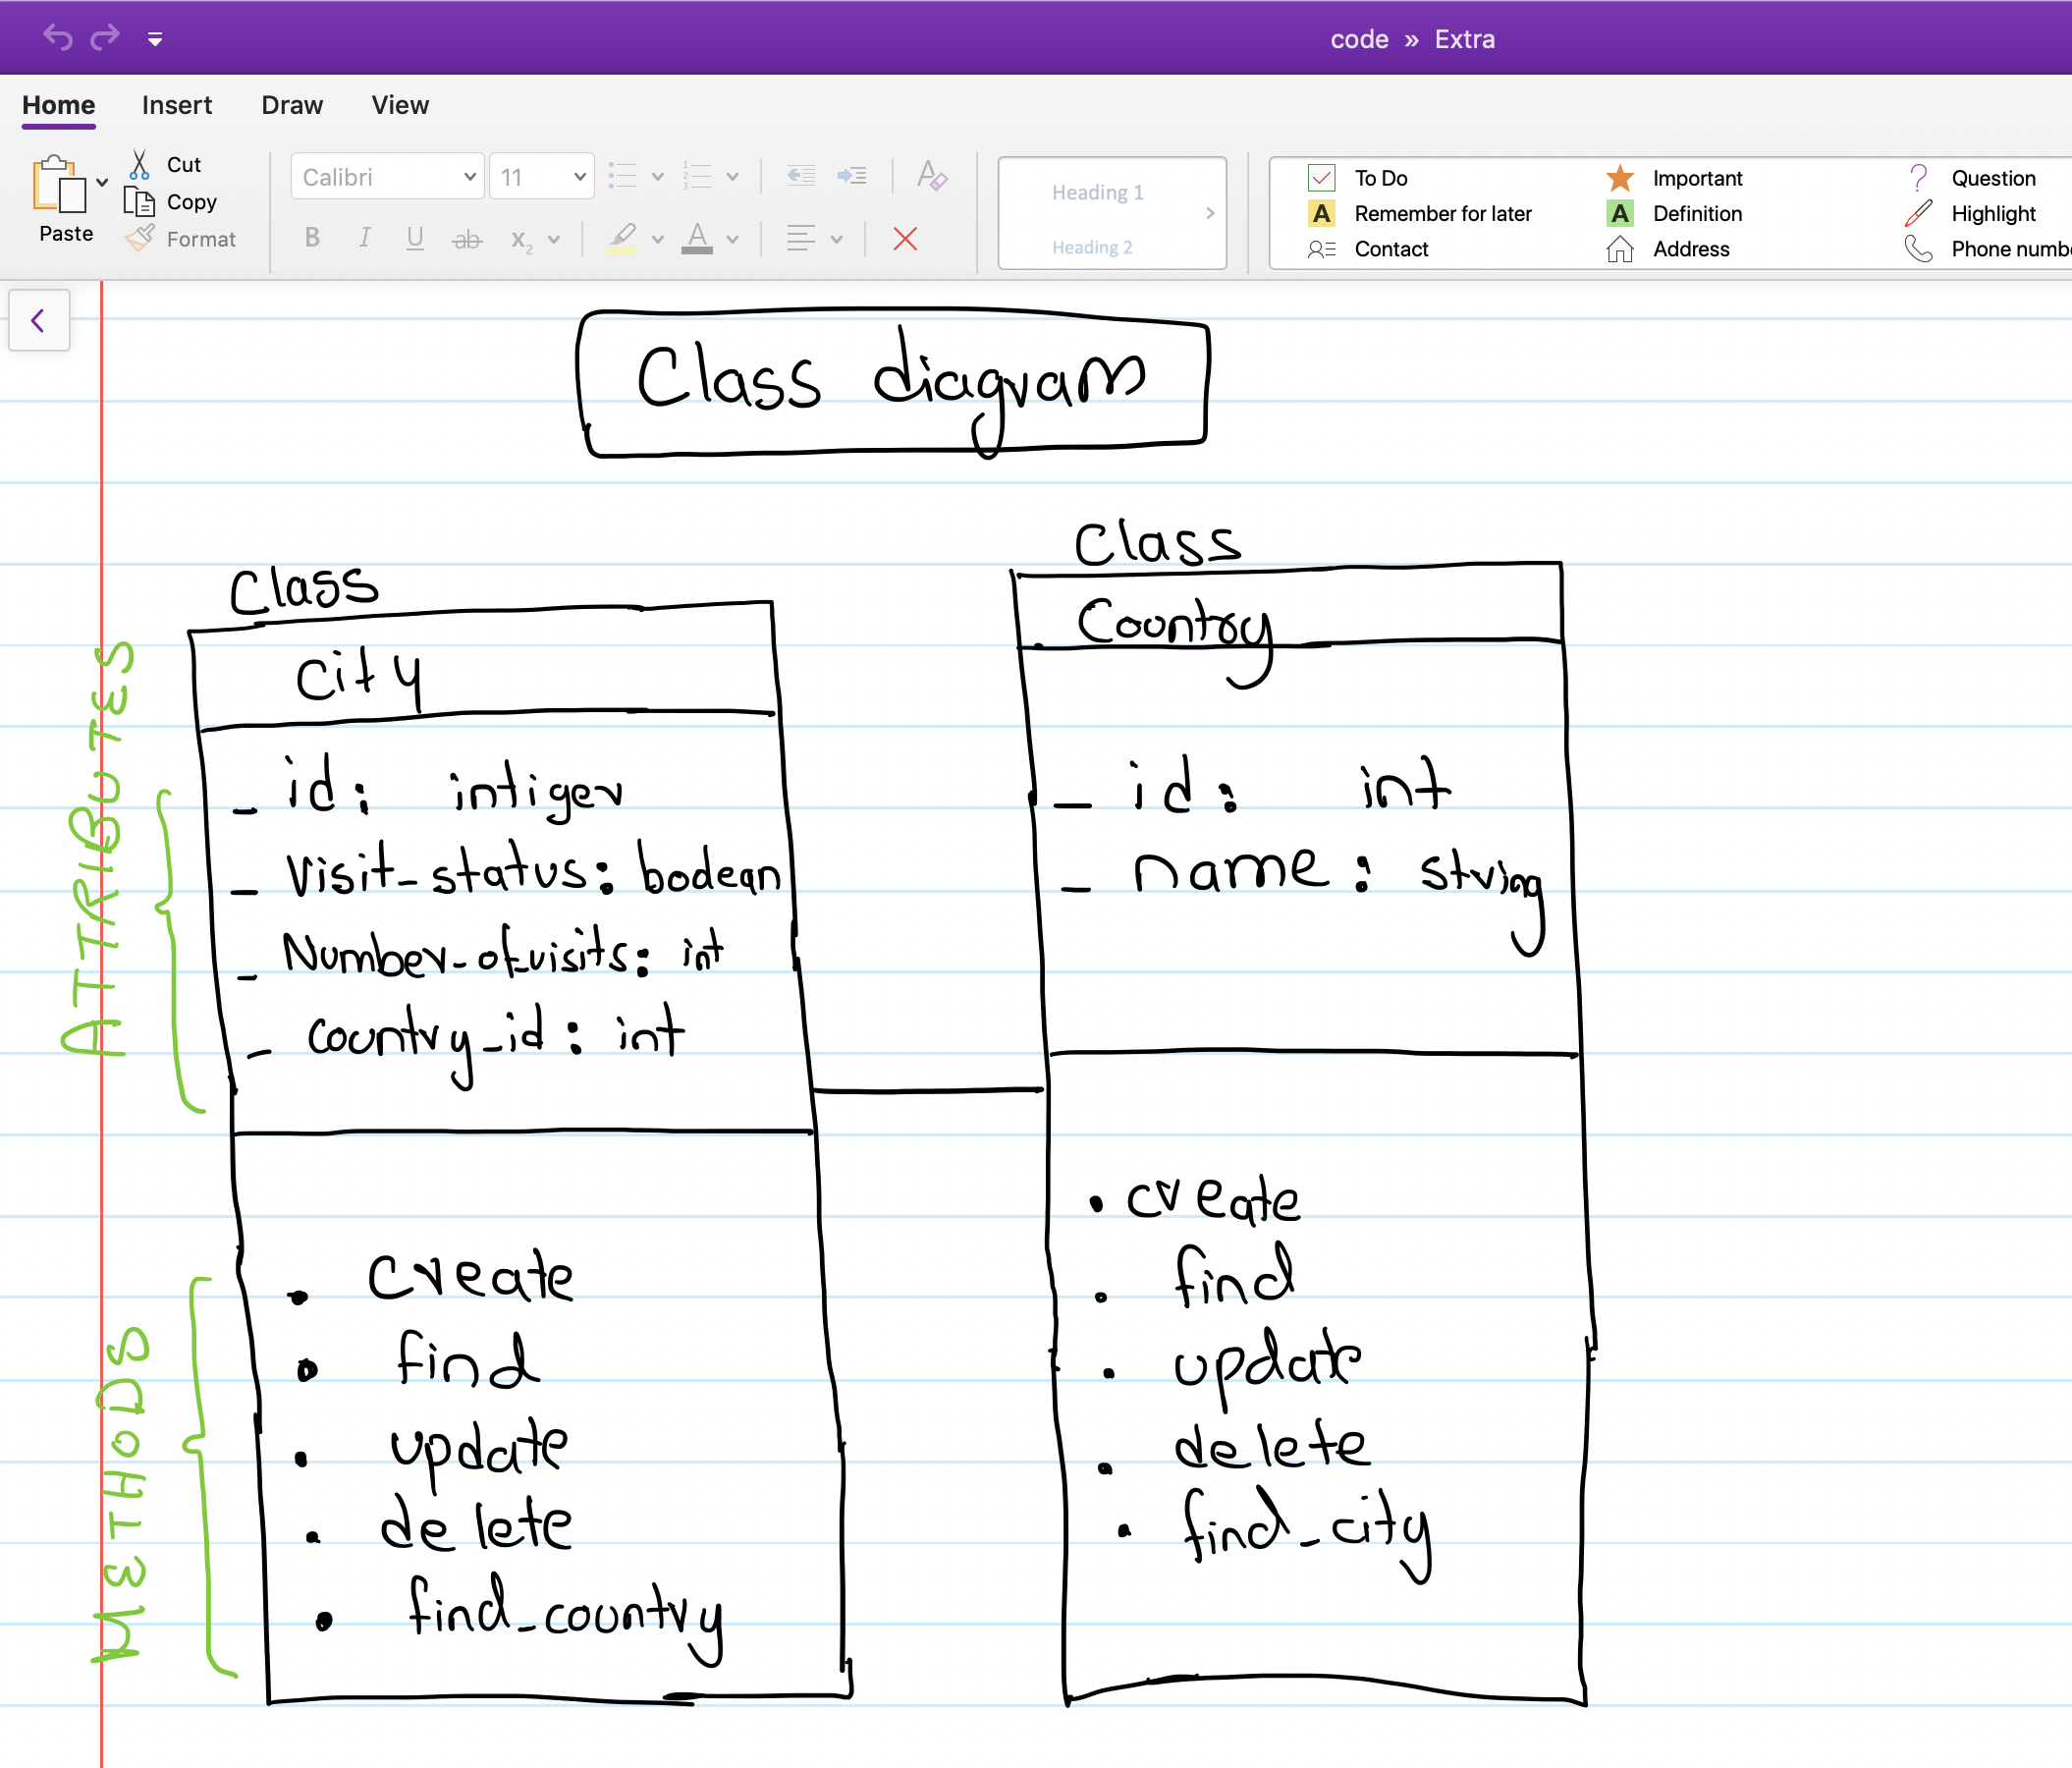 code » Extra
Home Insert Draw View
Paste
Cut
Copy
Format
Calibri 11
B I U ab x2 A
Heading 1
Heading 2
To Do
Remember for later
Contact
Important
Definition
Address
Question
Highlight
Phone numb
Class diagram
Class
City
ATTRIBUTES
- id: intiger
- Visit_status: boolean
- Number_of_visits: int
- country_id: int
METHODS
• create
• find
• update
• delete
• find_country
Class
Country
- id: int
- name: string
• create
• find
• update
• delete
• find_city